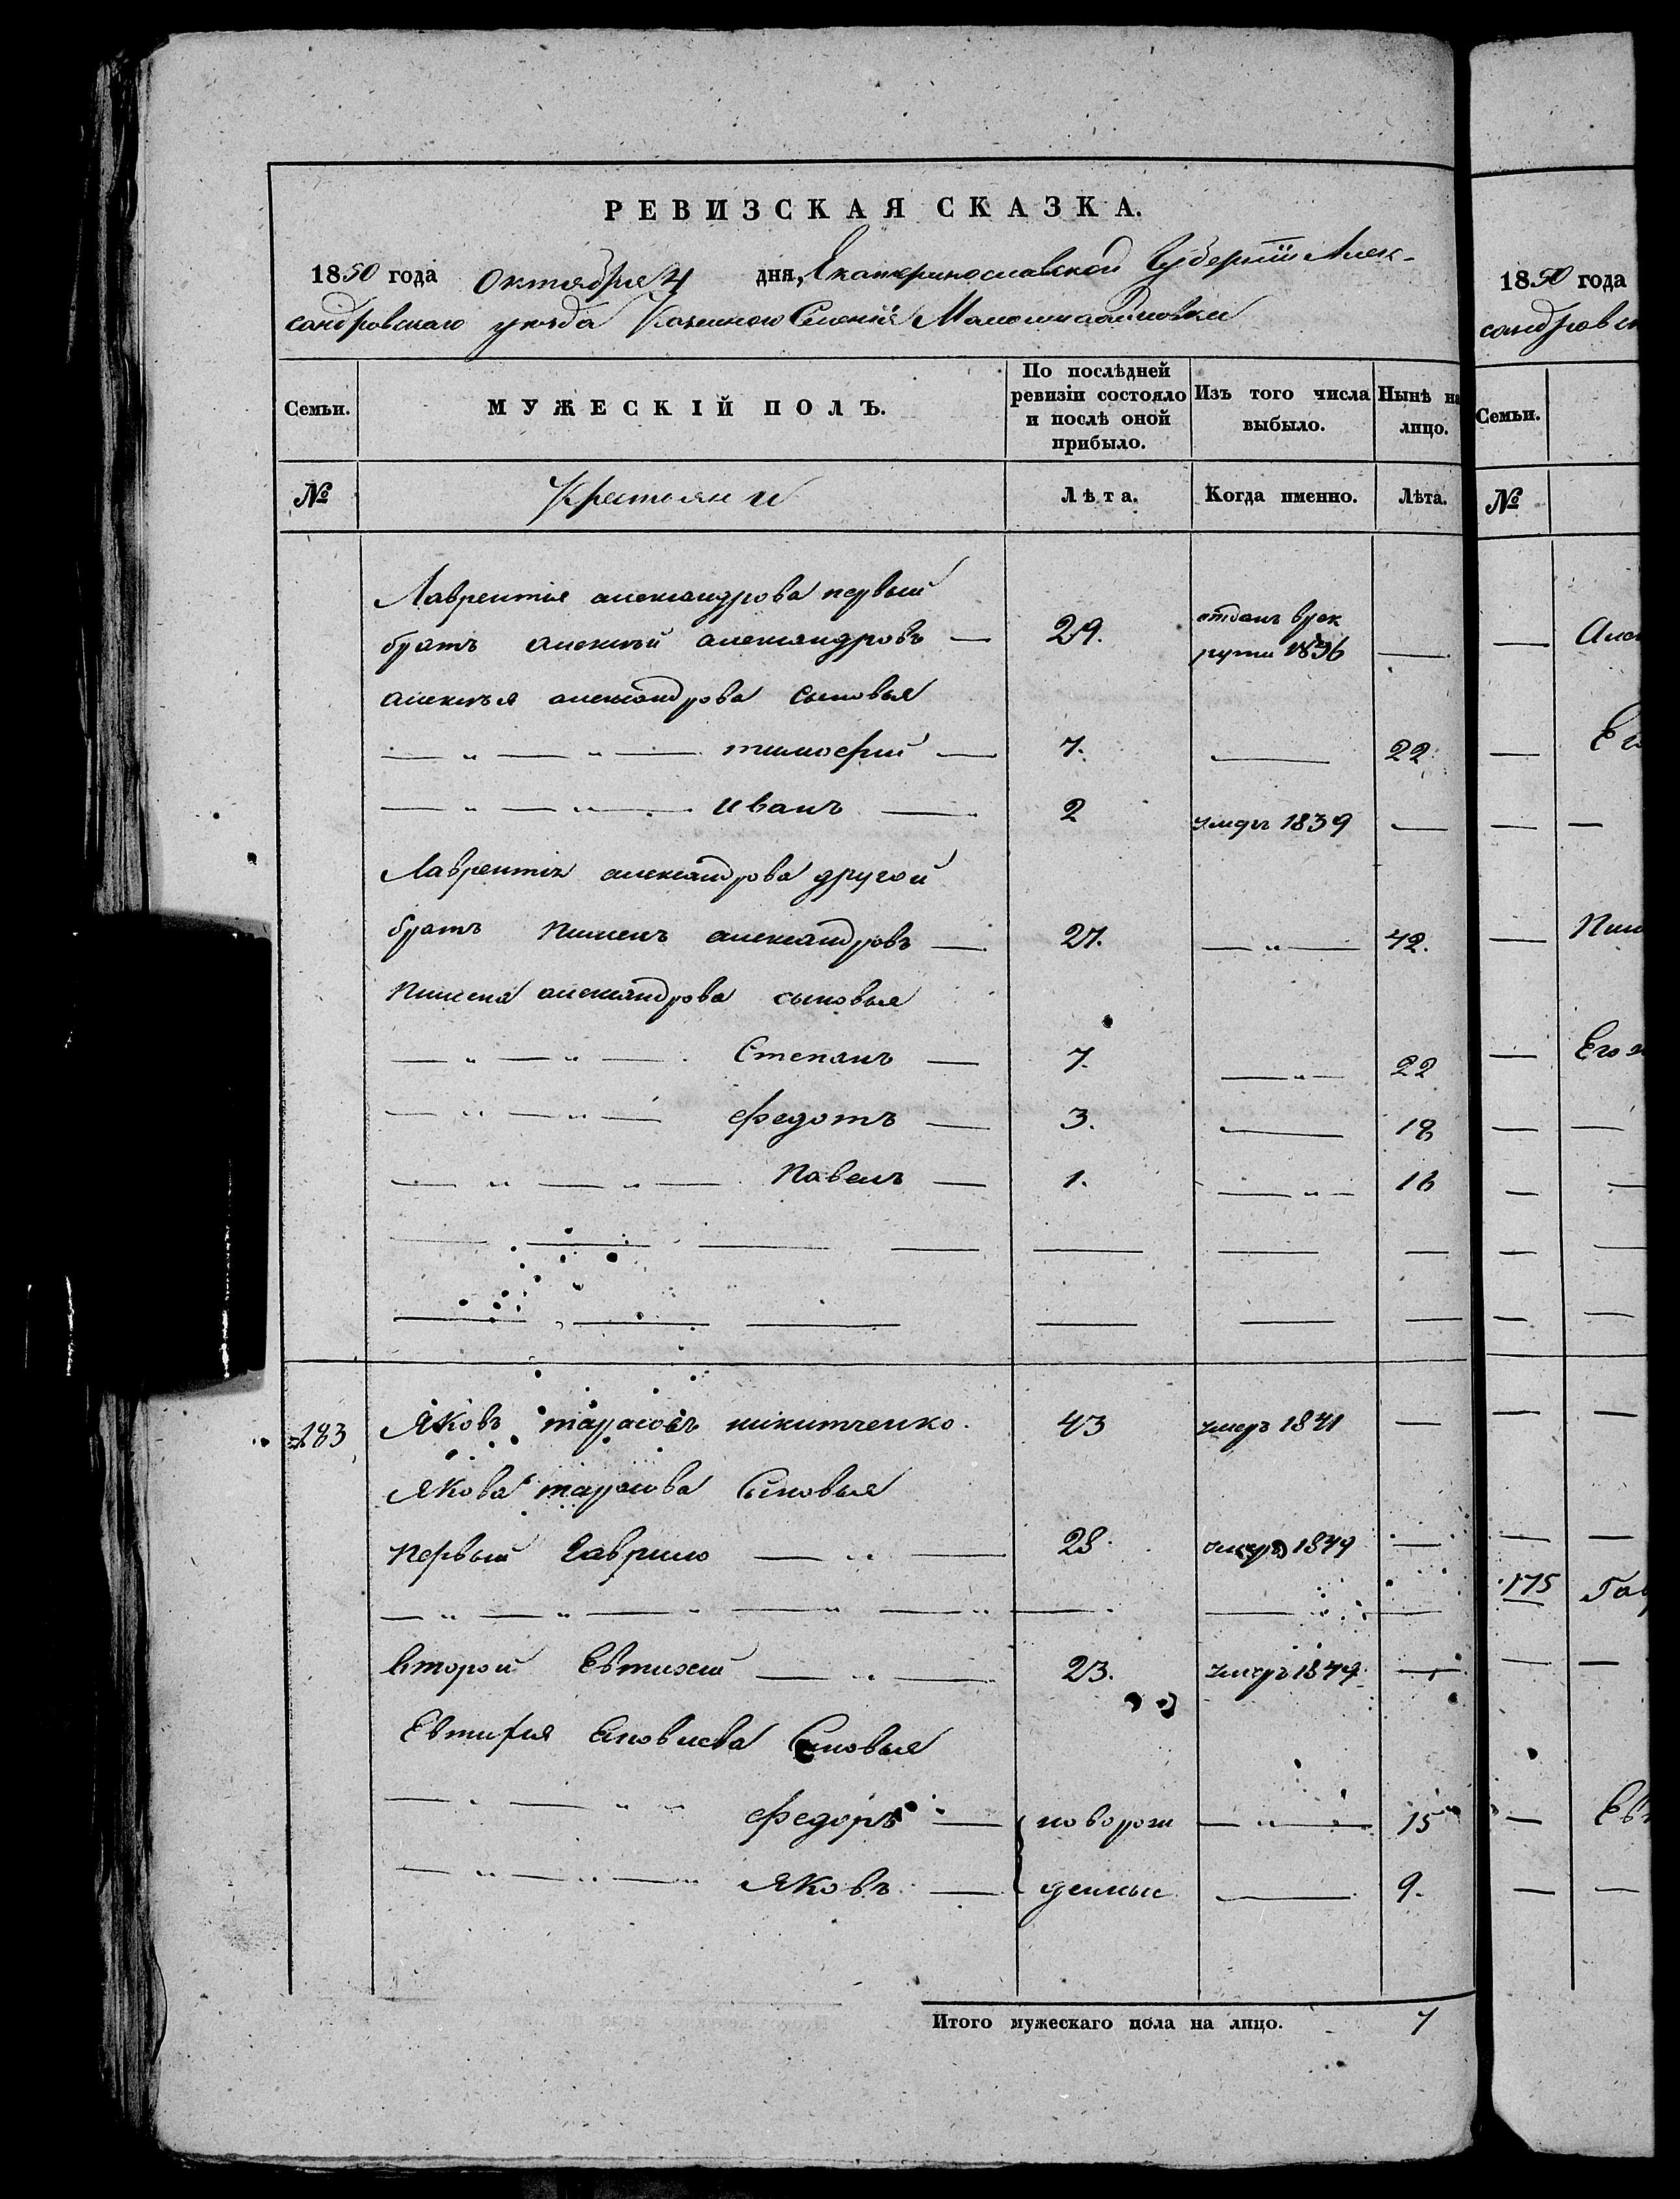 РЕВИЗСКАЯ СКАЗКА.
1850 года Октября 4 дня, Екатеринославской Губернiи Алек-
сандровскаго уезда Казенного Селенiя
Семьи. МУЖЕСКІЙ ПОЛЪ. По послѣдней ревизіи состояло и послѣ оной прибыло. Изъ того числа выбыло. Нынѣ на лицо.
№ Крестьяни Лѣта. Когда именно. Лѣта.
Лаврентiя александрова первый
братъ алексѣй александровъ — 29. отданъ врек
рути 1836 —
алексѣя александрова сыновья
— „ — „ — тимофей — 7. — 22
— „ — „ — иванъ — 2 умеръ 1839 —
Лаврентiя александрова другой
братъ пименъ александровъ — 27. — „ — 42.
пимена александрова сыновья
— „ — „ — Степанъ — 7. — „ — 22
— „ — „ — федотъ — 3. — 18
— „ — „ — павелъ — 1. — „ — 16
183 Яковъ тарасовъ никитченко. 43 умеръ 1841 —
Якова тарасова Сыновья
первый Гаврило — „ — 28. умеръ 1849 —
второй Евтихей — „ — 23. умеръ 1849 —
Евтифия Яковлева Сыновья
— „ — „ „ федоръ — новорож — „ — 15
— „ — „ — „ Яковъ — денные — 9.
Итого мужескаго пола на лицо. 7
1850 года
сандровск
Семьи.
№
— Алек
Его
— Пим
— Его ж
175 Гав
— Евт